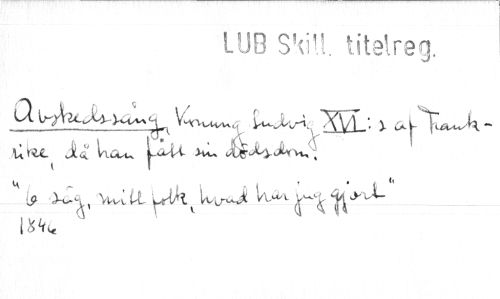 LUB Skill. titelreg.
Avskedssång, Konung Ludvig XVI:s af Frank-
rike, då han fått sin dödsdom.
"O säg, mitt folk, hvad har jag gjort"
1846